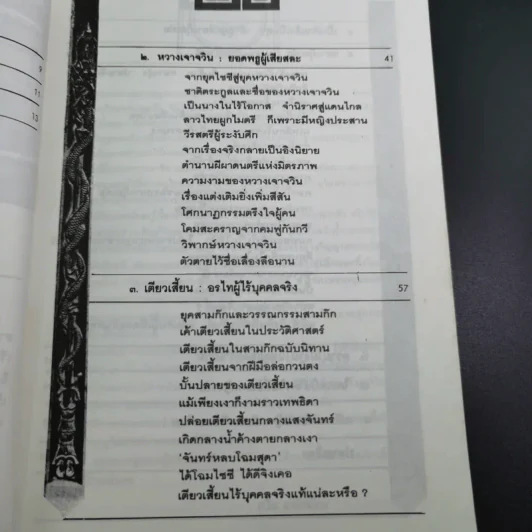 ๙
๑๑
๑๓
๒. หวางเจาจวิน : ยอดพธูผู้เสียสละ 41
จากยุคไซซีสู่ยุคหวางเจาจวิน
ชาติตระกูลและชื่อของหวางเจาจวิน
เป็นนางในไร้โอกาส จำนิราศสู่แดนไกล
ลาวไทยผูกไมตรี ก็เพราะมีหญิงประสาน
วีรสตรีผู้ระงับศึก
จากเรื่องจริงกลายเป็นอิงนิยาย
ตำนานผีผาดนตรีแห่งมิตรภาพ
ความงามของหวางเจาจวิน
เรื่องแต่งเติมยิ่งเพิ่มสีสัน
โศกนาฏกรรมตรึงใจผู้คน
โคมสะคราญจากคมพู่กันกวี
วิพากษ์หวางเจาจวิน
ตัวตายไว้ชื่อเลื่องลือนาน
๓. เตียวเสี้ยน : อรไทผู้ไร้บุคคลจริง 57
ยุคสามก๊กและวรรณกรรมสามก๊ก
เค้าเตียวเสี้ยนในประวัติศาสตร์
เตียวเสี้ยนในสามก๊กฉบับนิทาน
เตียวเสี้ยนจากฝีมือล่อกวนตง
บั้นปลายของเตียวเสี้ยน
แม้เพียงเงาก็งามราวเทพธิดา
ปล่อยเตียวเสี้ยนกลางแสงจันทร์
เกิดกลางน้ำค้างตายกลางเงา
‘จันทร์หลบโฉมสุดา’
ได้โฉมไซซี ได้ดีจิงเคอ
เตียวเสี้ยนไร้บุคคลจริงแท้แน่ละหรือ ?